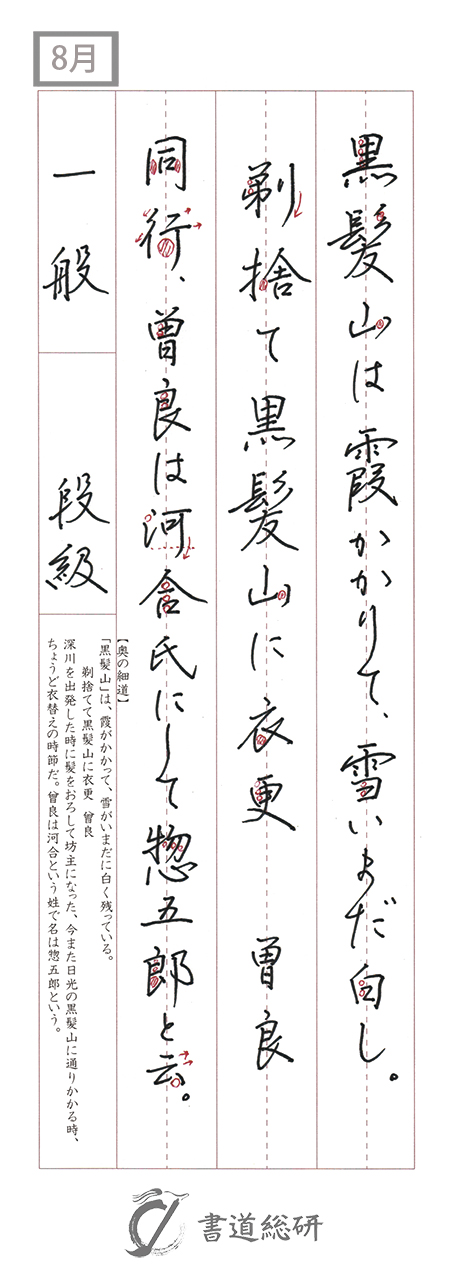 8月
黒髪山は霞かかりて、雪いまだ白し。
剃捨て黒髪山に衣更　曽良
同行、曽良は河合氏にして惣五郎と云。
一般
段級
【奥の細道】
「黒髪山」は、霞がかかって、雪がいまだに白く残っている。
剃捨てて黒髪山に衣更　曽良
深川を出発した時に髪をおろして坊主になった、今また日光の黒髪山に通りかかる時、
ちょうど衣替えの時節だ。曽良は河合という姓で名は惣五郎という。
書道総研